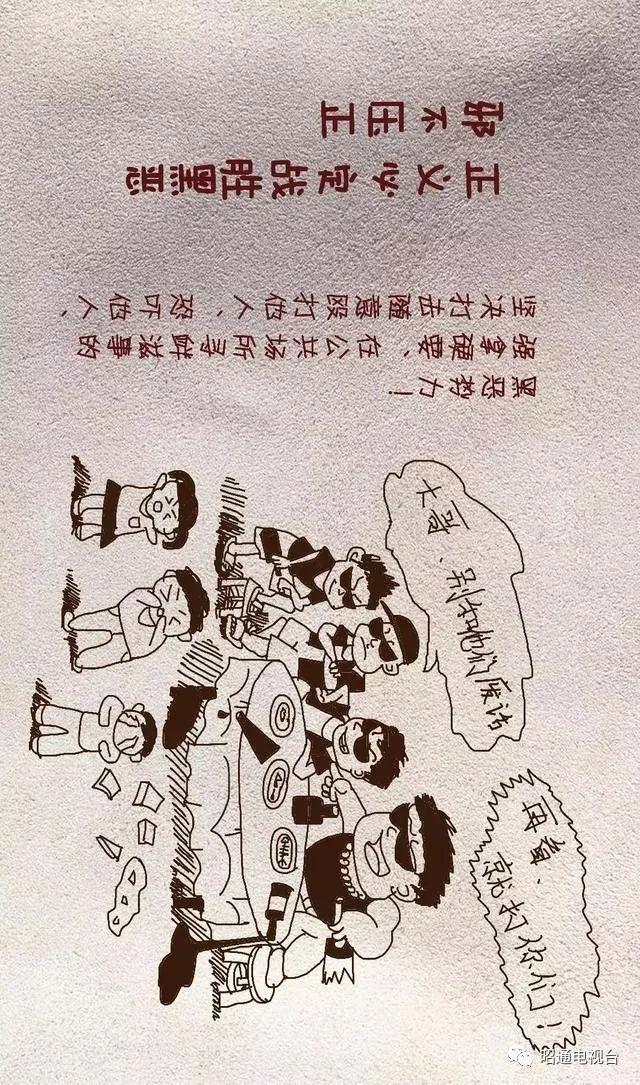 邪不压正
正义必定战胜黑恶
坚决打击随意殴打他人、恐吓他人、
强拿硬要、在公共场所寻衅滋事的
黑恶势力！
大哥、别和他们废话
再看、
就打你们！
昭通电视台